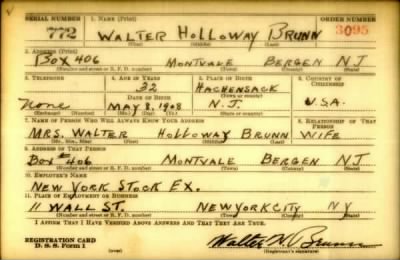 SERIAL NUMBER 1. NAME (Print) ORDER NUMBER
772 WALTER HOLLOWAY BRUNN 3095
(First) (Middle) (Last)
2. ADDRESS (Print)
BOX 406 MONTVALE BERGEN NJ
(Number and street or R. F. D. number) (Town) (County) (State)
3. TELEPHONE 4. AGE IN YEARS 5. PLACE OF BIRTH 6. COUNTRY OF CITIZENSHIP
32 HACKENSACK
DATE OF BIRTH (Town or county)
None MAY 8, 1908 N.J. U.S.A.
(Exchange) (Number) (Mo.) (Day) (Yr.) (State or country)
7. NAME OF PERSON WHO WILL ALWAYS KNOW YOUR ADDRESS 8. RELATIONSHIP OF THAT PERSON
MRS. WALTER HOLLOWAY BRUNN WIFE
(Mr., Mrs., Miss) (First) (Middle) (Last)
9. ADDRESS OF THAT PERSON
BOX # 406 MONTVALE BERGEN NJ
(Number and street or R. F. D. number) (Town) (County) (State)
10. EMPLOYER'S NAME
NEW YORK STOCK EX.
11. PLACE OF EMPLOYMENT OR BUSINESS
11 WALL ST. NEW YORK CITY NY
(Number and street or R. F. D. number) (Town) (County) (State)
I AFFIRM THAT I HAVE VERIFIED ABOVE ANSWERS AND THAT THEY ARE TRUE.
REGISTRATION CARD
D. S. S. Form 1 (over) Walter H. Brunn
(Registrant's signature)